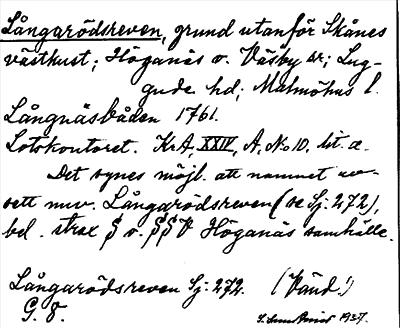 Långarödsreven, grund utanför Skånes
västkust; Höganäs o. Väsby sr; Lug-
gude hd; Malmöhus l.
Långnäsbåden 1761.
Lotskontoret. KrA, XXIV, A, No 10, lit. a.
Det synes möjl. att namnet av-
sett nuv. Långarödsreven (se Sj. 272),
bel. strax S o. SSV Höganäs samhälle.
Långarödsreven Sj: 272. (Vänd!)
G. 8.
1937.